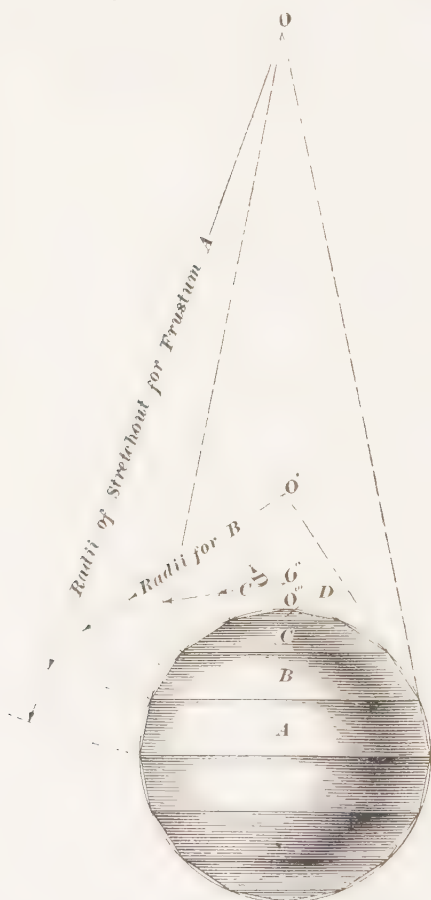 O
Radii of Stretchout for Frustum A
O'
Radii for B
C
D
O''
O'''
D
C
B
A